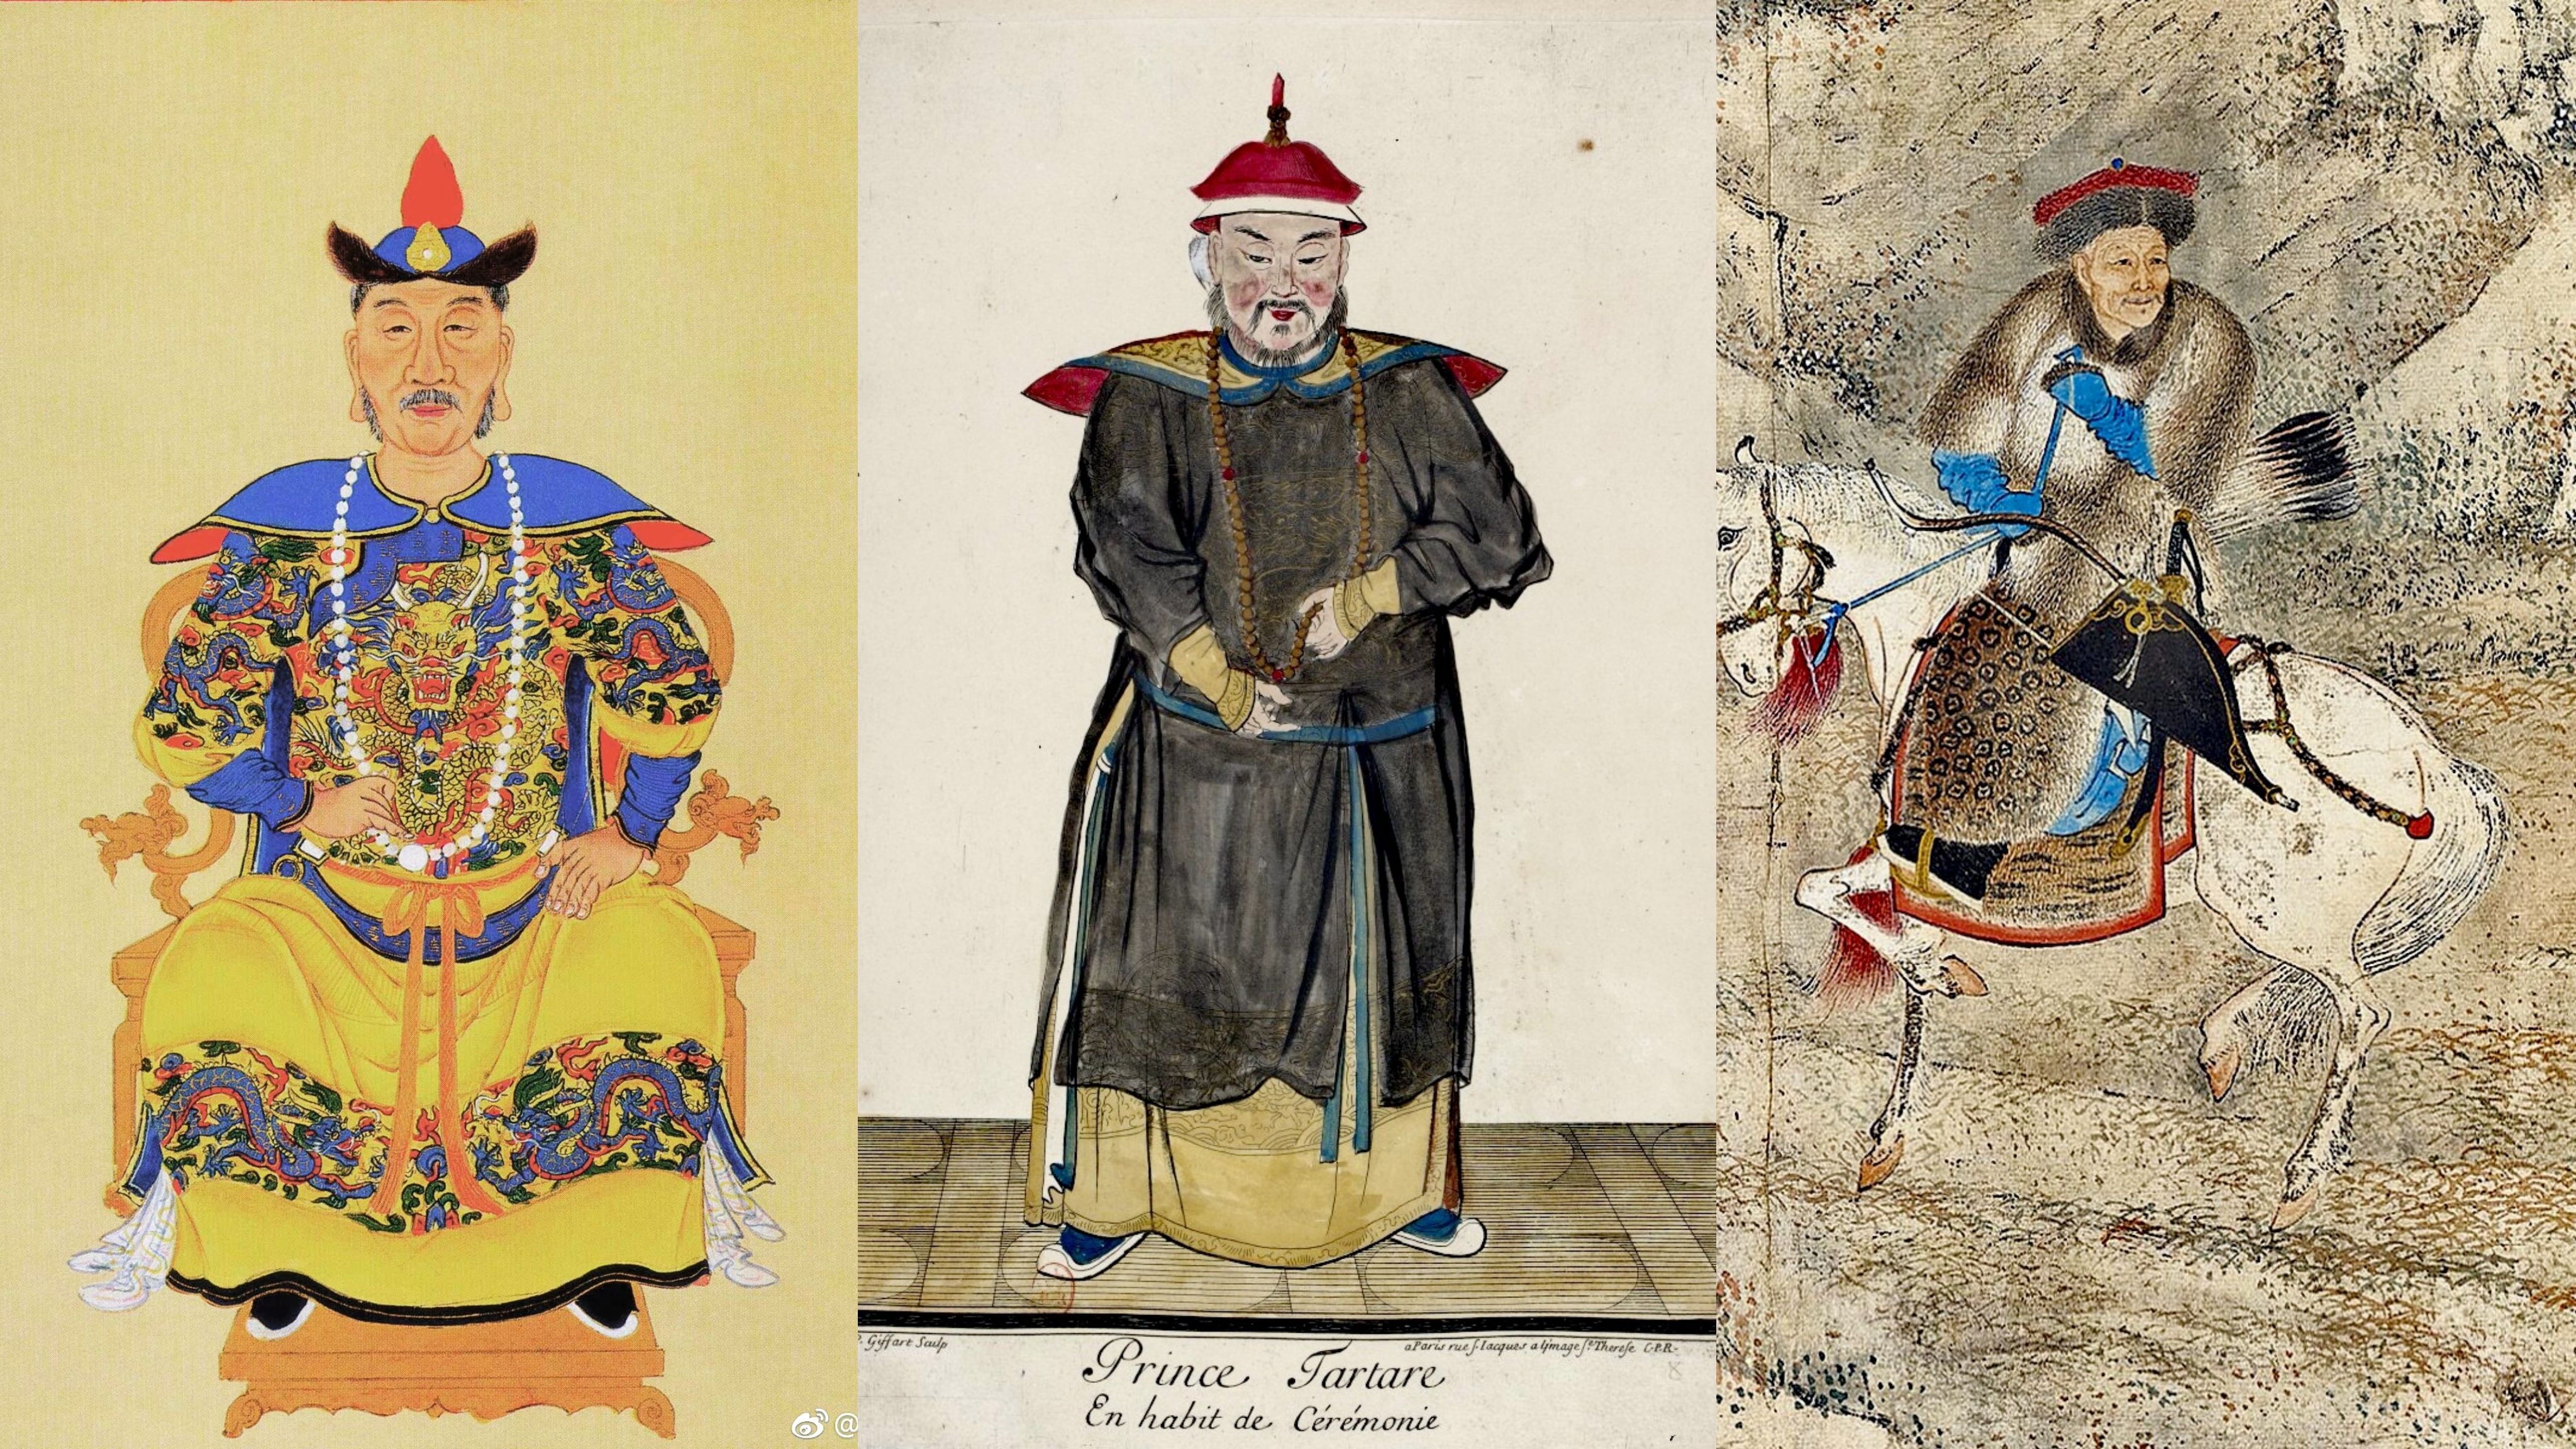 P. Giffart Sculp
a Paris rue S. Iacques a l'jmage Ste Therese C.P.R.
Prince Tartare
En habit de Cérémonie
@